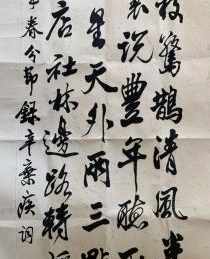 枝驚鵲清風半
裏说豐年聽
星天外兩三點
店社林邊路轉
春分節錄辛棄疾詞